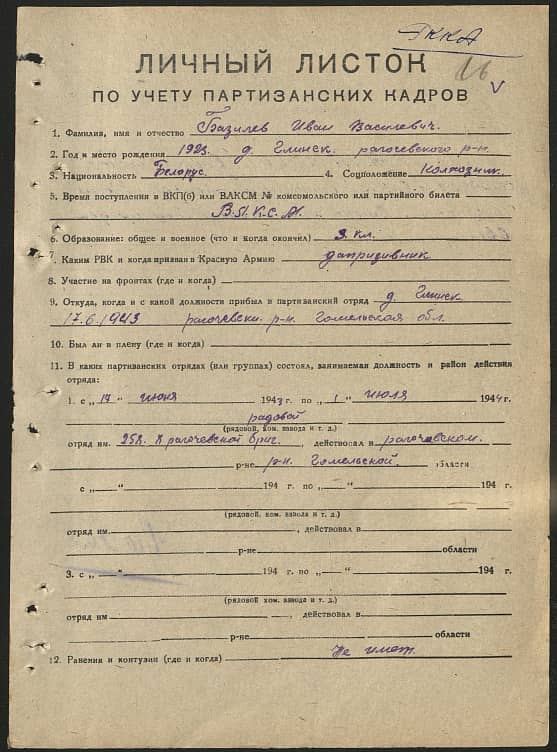 РККА
ЛИЧНЫЙ ЛИСТОК
ПО УЧЕТУ ПАРТИЗАНСКИХ КАДРОВ
1. Фамилия, имя и отчество Базилев Иван Василевич.
2. Год и место рождения 1925. д. Глинск. рагачевского р-н.
3. Национальность Белорус. 4. Соцположение Колхозник.
5. Время поступления в ВКП(б) или ВЛКСМ № комсомольского или партийного билета
В.Л.К.С.М.
6. Образование: общее и военное (что и когда окончил) 3. кл.
7. Каким РВК и когда призван в Красную Армию допризивник
8. Участие на фронтах (где и когда)
9. Откуда, когда и с какой должности прибыл в партизанский отряд д. Глинск
17.6.1943 рагочевски. р-н. Гомельская обл.
10. Был ли в плену (где и когда)
11. В каких партизанских отрядах (или группах) состоял, занимаемая должность и район действия
отряда:
1. с „ 17 " июня 1943 г. по „ 1 " июля 1944 г.
радовой
(рядовой, ком. взвода и т. д.)
отряд им. 258. 8 рагочевской бриг. , действовал в рагочевском.
р-не р-н. Гомельской. области
с „ " 194 г. по „ " 194 г.
(рядовой, ком. взвода и т. д.)
отряд им. , действовал в
р-не области
3. с „ " 194 г. по „ " 194 г.
(рядовой, ком. взвода и т. д.)
отряд им. , действовал в
р-не области
12. Ранения и контузии (где и когда) Не имет.